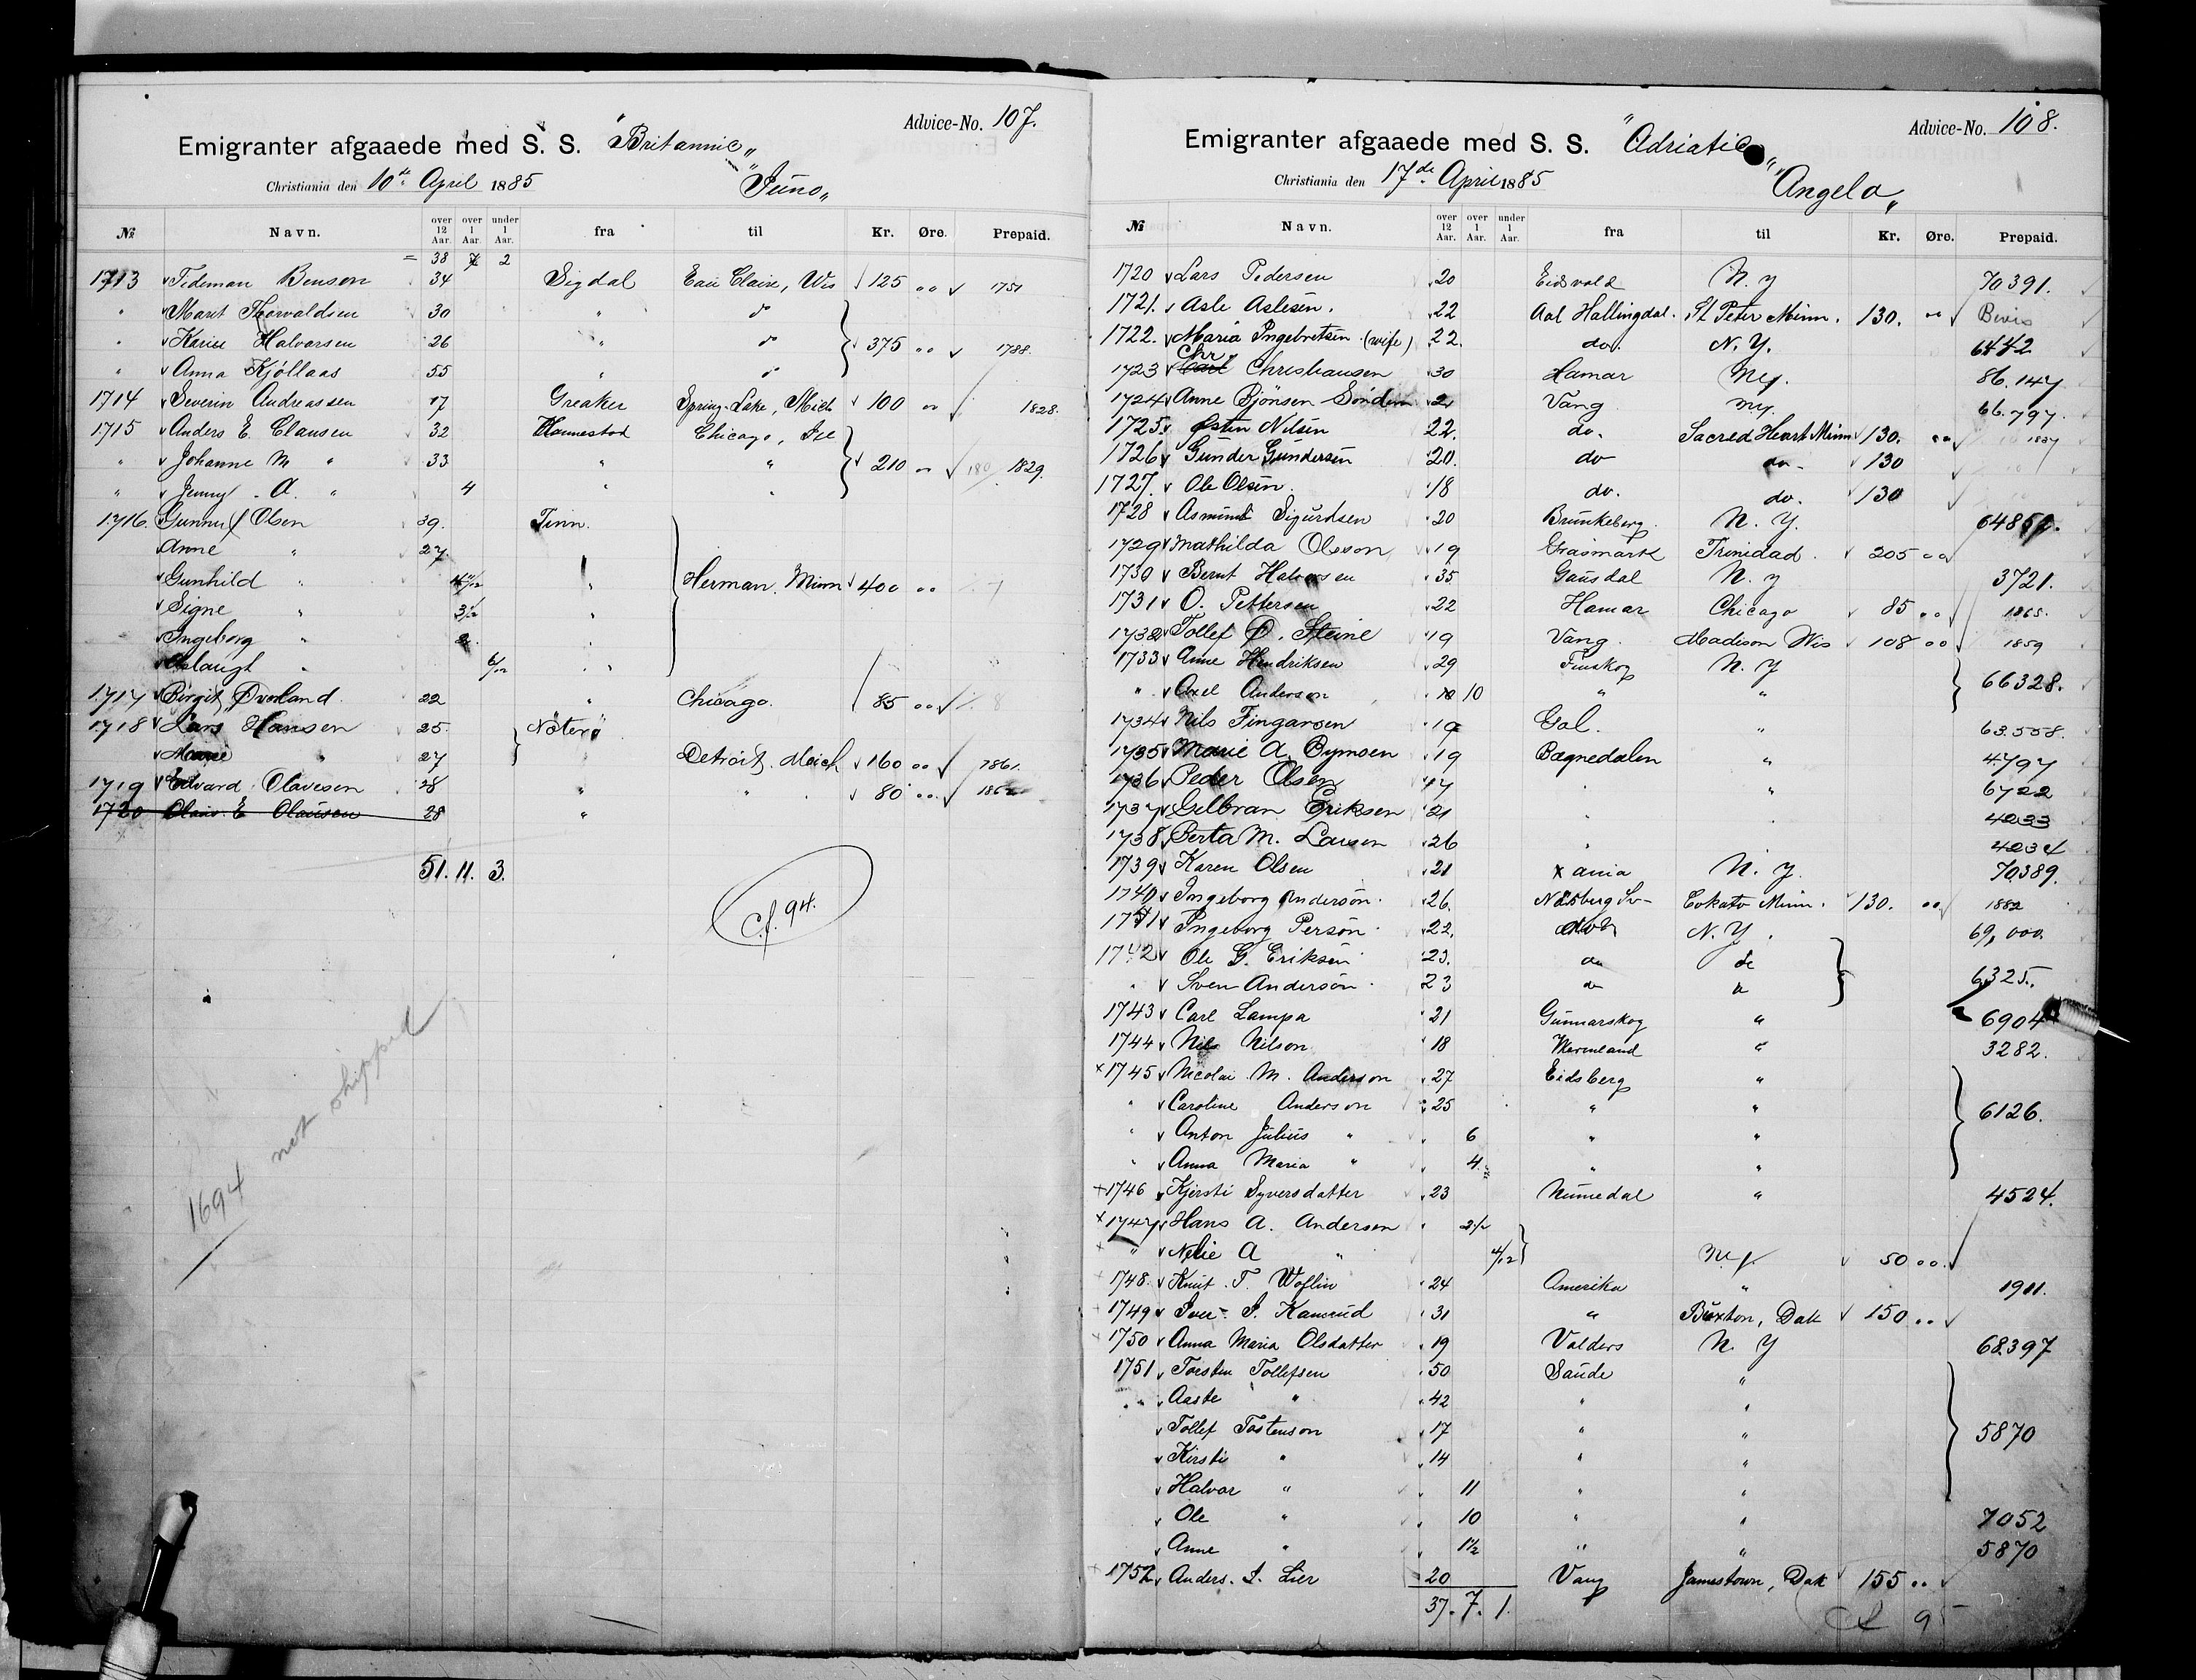 Advice-No. 107.
Emigranter afgaaede med S. S. "Britannic"
Christiania den 10de April 1885 "Juno"
№ Navn. over 12 Aar. over 1 Aar. under 1 Aar. fra til Kr. Øre. Prepaid.
= 38 7 2
1713 Tideman Benson 34 Sigdal Eau Claire, Wis 125 " 1751
" Marit Thorvaldsen 30 " do
" Karine Halvorsen 26 " do 375 " 1788.
" Anna Kjöllaas 55 " do
1714 Severin Andreassen 17 Greaker Spring-Lake, Mich 100 " 1828.
1715 Anders E. Clausen 32 Chicago, Ill
" Johanne M " 33 " " 210 " 180 1829.
" Jenny A. " 4 " "
1716. Gunnul Olsen 39. Tinn.
Anne " 27
Gunhild " " Herman. Minn 400 "
Signe " 3½ "
Ingeborg " "
Aslaugt " 6/12 "
1717 Birgit Øverland 22 " Chicago. 85 "
1718 Lars Hansen 25. Nöterö
" 27 Detroit. Mich 160 " 1861.
1719 Edvard Olavesen 28 " " 80 "
1720 Olav. E Olausen 28 "
51. 11. 3.
cf. 94.
1694 not shipped
Advice-No. 108.
Emigranter afgaaede med S. S. "Adriatic"
Christiania den 17de April 1885 "Angelo"
№ Navn. over 12 Aar. over 1 Aar. under 1 Aar. fra til Kr. Øre. Prepaid.
1720 Lars Pedersen 20 Eidsvold N. Y 70391.
1721. Asle Aslesen. 22 Aal Hallingdal. St Peter Minn. 130. " Bevis
1722. Maria Ingebretsen (wife) 22. do. N. Y. 6442
1723 Chr Christiansen 30 Hamar Ny. 86.147
1724 Anne Björnsen 21 Vang Ny. 66.797.
1725 Østen Nilsen 22. do. Sacred Heart Minn 130. " 1837
1726 Gunder Gundersen 20. do do- 130
1727. Ole Olsen. 18 do. do. 130
1728 Asmund Sigurdsen 20 Brunkeberg. N. Y.
1729 Mathilda Olsson 19 Gräsmark Trinidad. 205 "
1730 Bernt Halvorsen 35 Gausdal N. Y 3721.
1731 O. Pettersen 22 Hamar Chicago 85 " 1865.
1732 Tollef O. Steine 19 Vang. Madison Wis 108 " 1859
1733 Anne Hendriksen 29 Finskog N. Y
" Axel Anderson 10 " " 66328.
1734 Nils Fingarsen 19 Gol. " 63558.
1735 Marie A. Bymoen 19 Bægnedalen " 4797
1736 Peder Olsen 17 " " 6722
1737 Gulbran Eriksen 21 " " 4233
1738 Berta M. Larsen 26 " 4234
1739 Karen Olsen 21 Xania N. Y. 70389.
1740 Ingeborg Anderson. 26. Cokato Minn. 130. " 1882
1741 Ingeborg Person. 22. N. Y. 69,000.
1742 Ole G. Eriksen 23. do do
" Sven Anderson. 23 do do 6325.
1743 Carl Lampa 21 Gunnarskog " 6904
1744 Nils Nilson 18 Wermland " 3282.
x 1745 Nicolai M. Anderson 27 Eidsberg "
" Caroline Anderson 25 " "
" Anton Julius " 6 " " 6126.
" Anna Maria " 4 " "
+ 1746 Kjersti Syversdatter 23 Numedal " 4524.
x 1747 Hans A. Andersen 2½
" Nelie A " 4/12 Ny. 50 "
1748. Knut T. 24 Amerika " 1911.
1749 Iver I. Kamrud 31 " Buxton, Dak 150 "
1750 Anna Maria Olsdatter 19 Valders N. Y 68397
1751 Torsten Tollefsen 50 Saude "
" Aaste " 42 " "
Tollef Tostenson 17 " " 5870
Kirsti " 14 " "
Halvor " 11 " "
Ole " 10 " " 7052
Anne " 1½ " " 5870
1752 Anders. I. Lier 20 Vang Jamestown, Dak 155 "
37. 7. 1.
cf 95